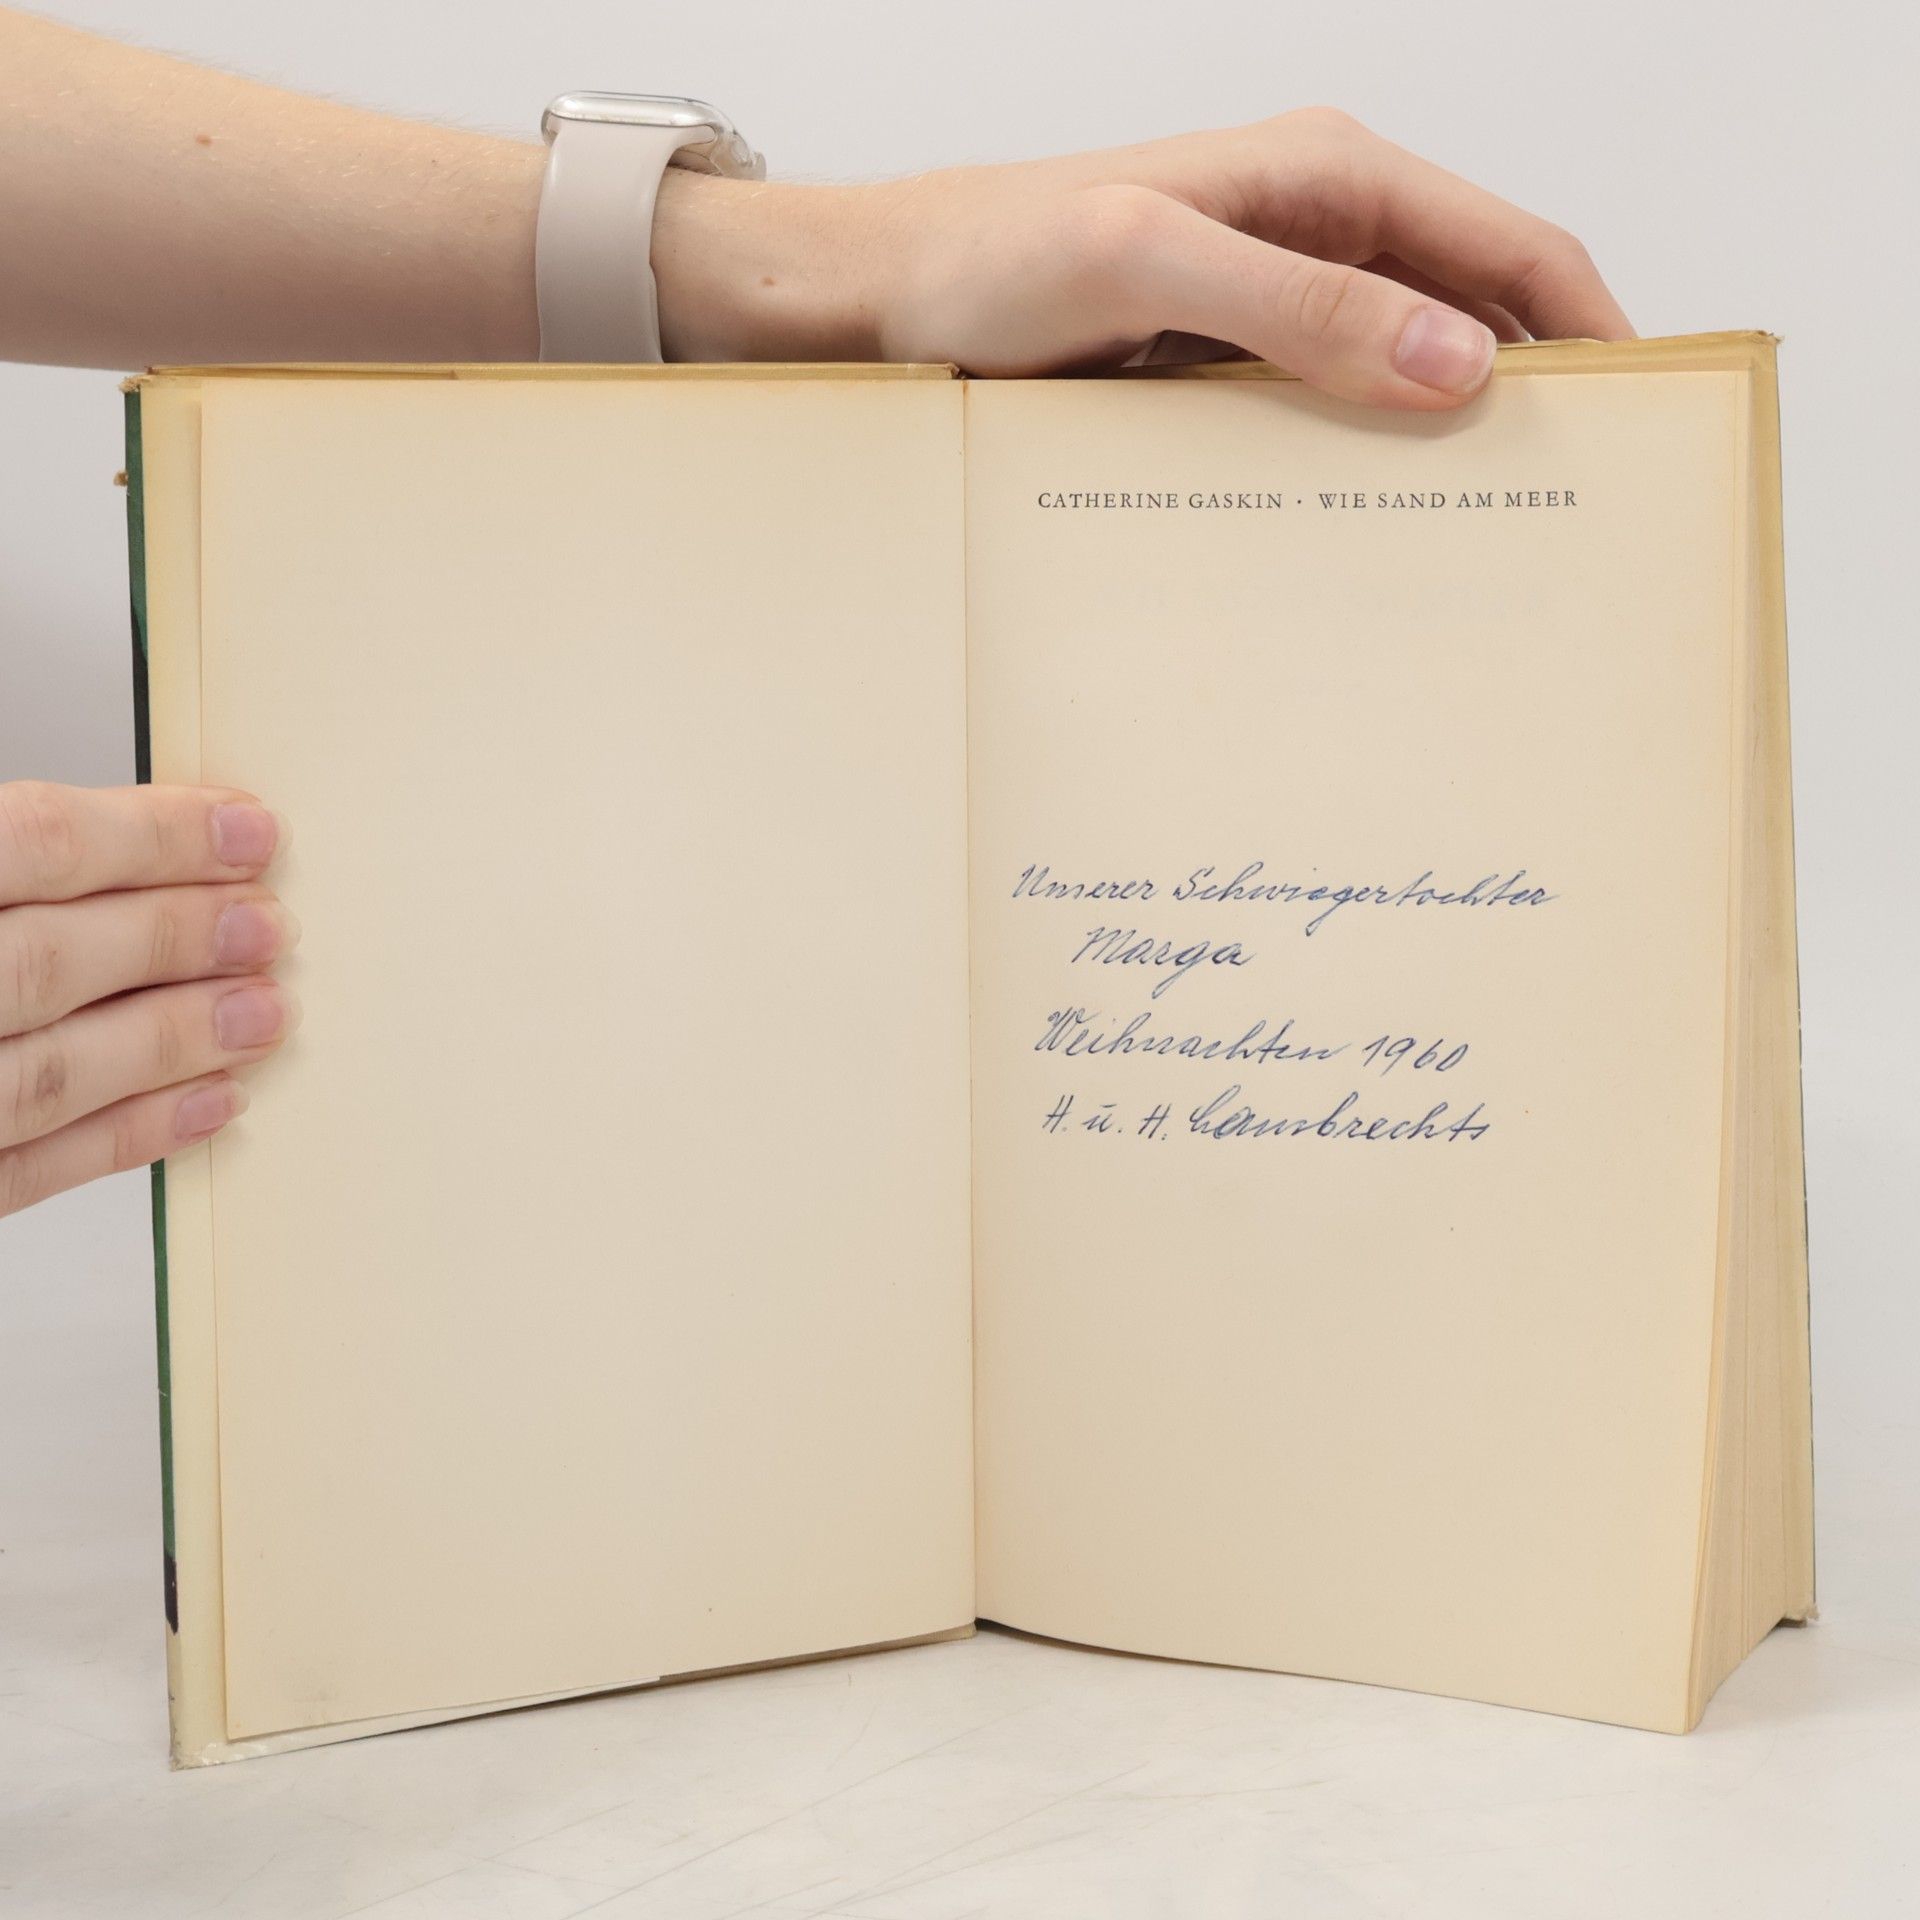 CATHERINE GASKIN · WIE SAND AM MEER
Unserer Schwiegertochter
Marga
Weihnachten 1960
H. u. H. Lambrechts